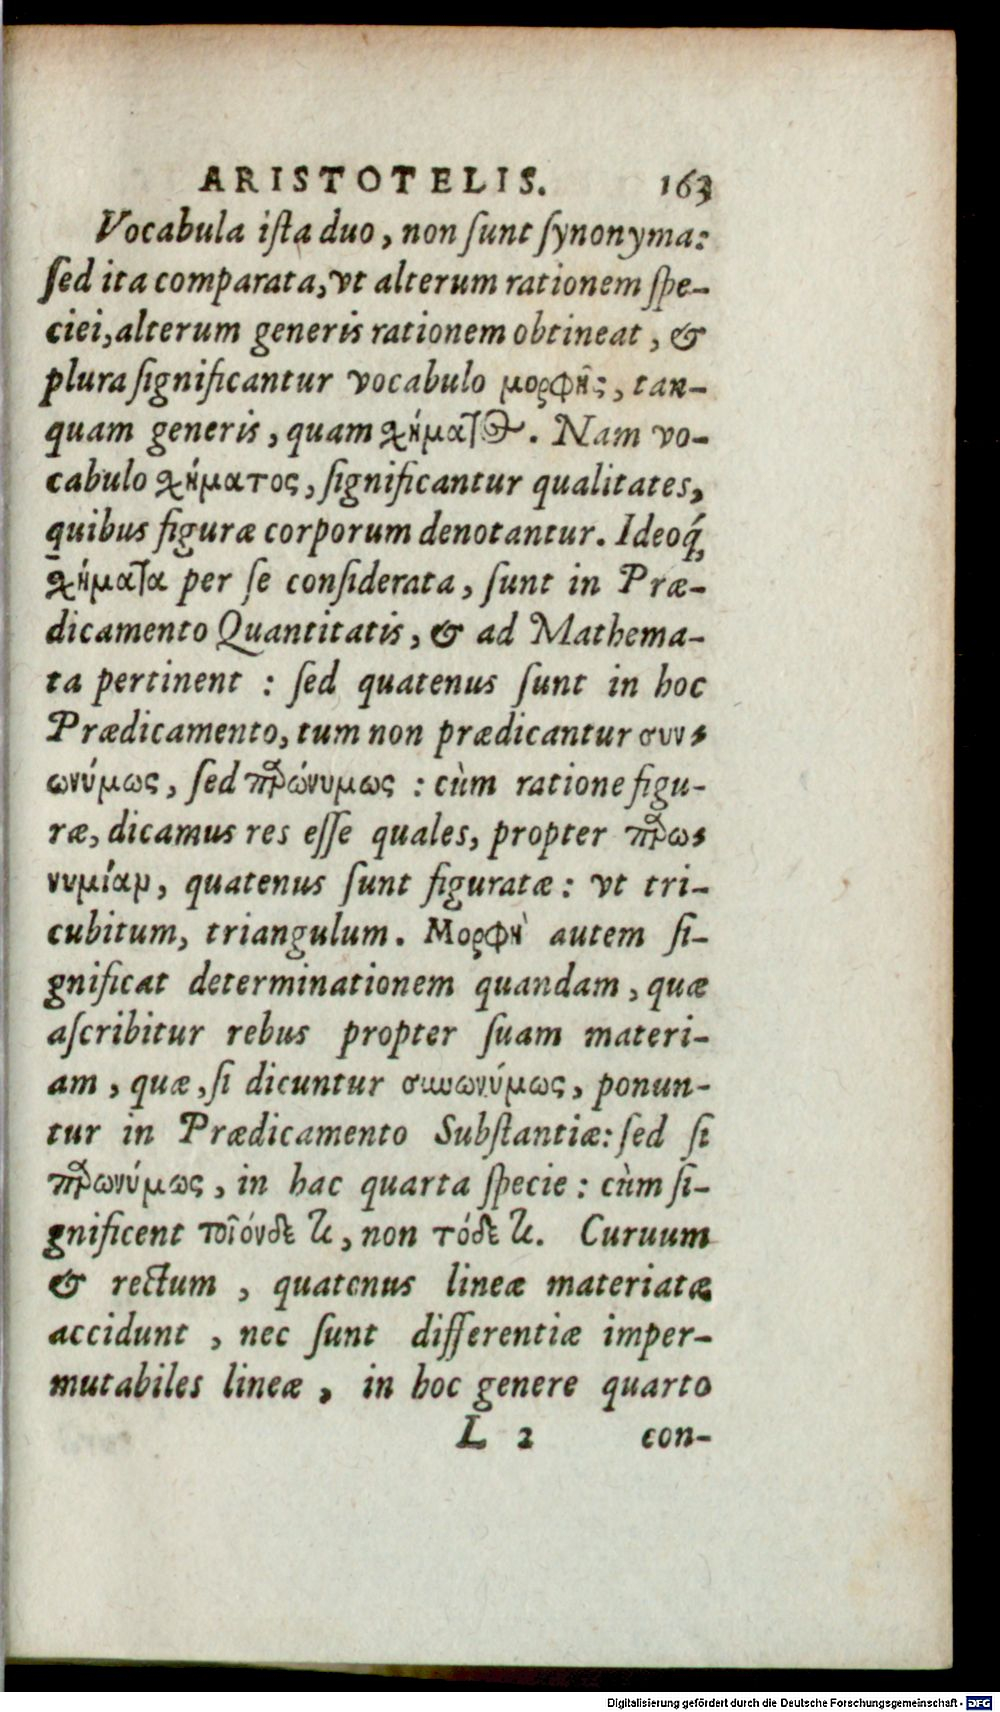 ARISTOTELIS. 163
Vocabula iſta duo, non ſunt ſynonyma:
ſed ita comparata, vt alterum rationem ſpe-
ciei, alterum generis rationem obtineat, &
plura ſignificantur vocabulo μορφῆς, tan-
quam generis, quam χήματος. Nam vo-
cabulo χήματος, ſignificantur qualitates,
quibus figuræ corporum denotantur. Ideoq́;
χήματα per ſe conſiderata, ſunt in Præ-
dicamento Quantitatis, & ad Mathema-
ta pertinent : ſed quatenus ſunt in hoc
Prædicamento, tum non prædicantur συν-
ωνύμως, ſed παρώνυμως : cùm ratione figu-
ræ, dicamus res eſſe quales, propter παρω-
νυμίαν, quatenus ſunt figuratæ : vt tri-
cubitum, triangulum. Μορφὴ autem ſi-
gnificat determinationem quandam, quæ
aſcribitur rebus propter ſuam materi-
am, quæ, ſi dicuntur συνωνύμως, ponun-
tur in Prædicamento Subſtantiæ: ſed ſi
παρωνύμως, in hac quarta ſpecie : cùm ſi-
gnificent τοιόνδε τι, non τόδε τι. Curuum
& rectum, quatenus lineæ materiatæ
accidunt, nec ſunt differentiæ imper-
mutabiles lineæ, in hoc genere quarto
L 2 con-
Digitalisierung gefördert durch die Deutsche Forschungsgemeinschaft - DFG